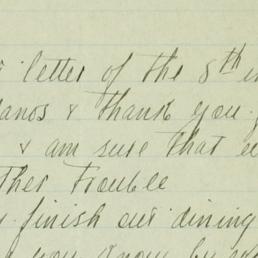 letter of the 8th in
& thank you
& am sure that
ther trouble
finish our dining
you know by